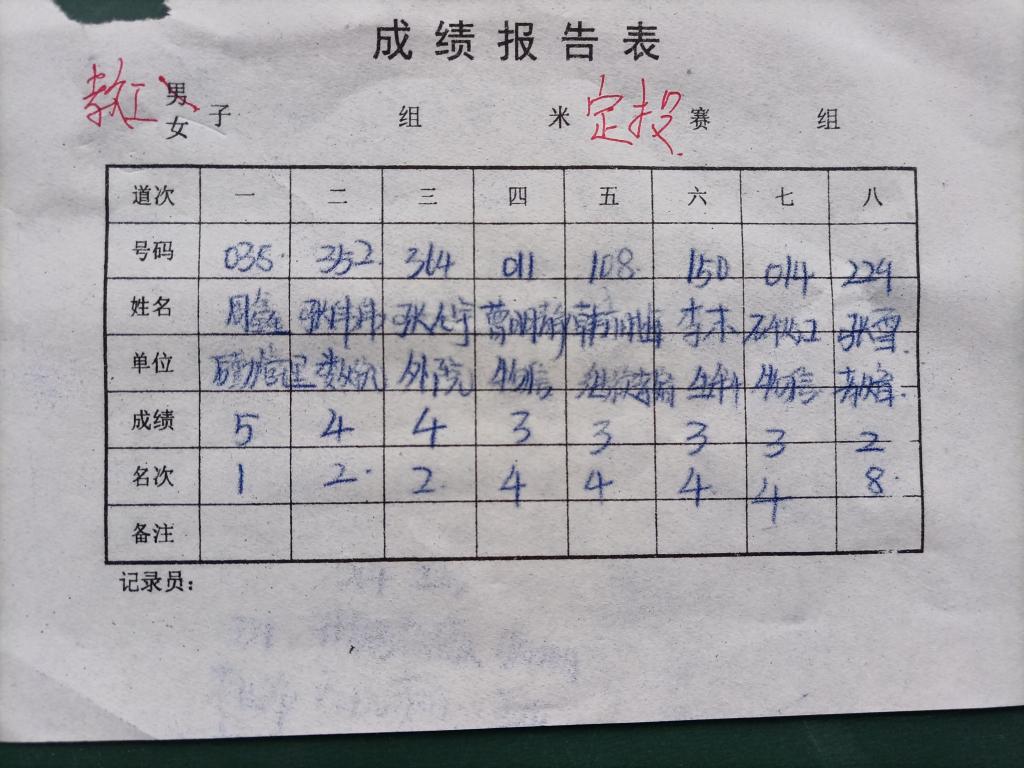 成绩报告表
教工 男 女 子 组 米 定投 赛 组
道次 一 二 三 四 五 六 七 八
号码 035 352 364 011 108 150 014 229
姓名 周鑫 张伟伟 曹明静 李木 张雪
单位 外院 生信 生科 生信
成绩 5 4 4 3 3 3 3 2
名次 1 2 2 4 4 4 4 8
备注
记录员: